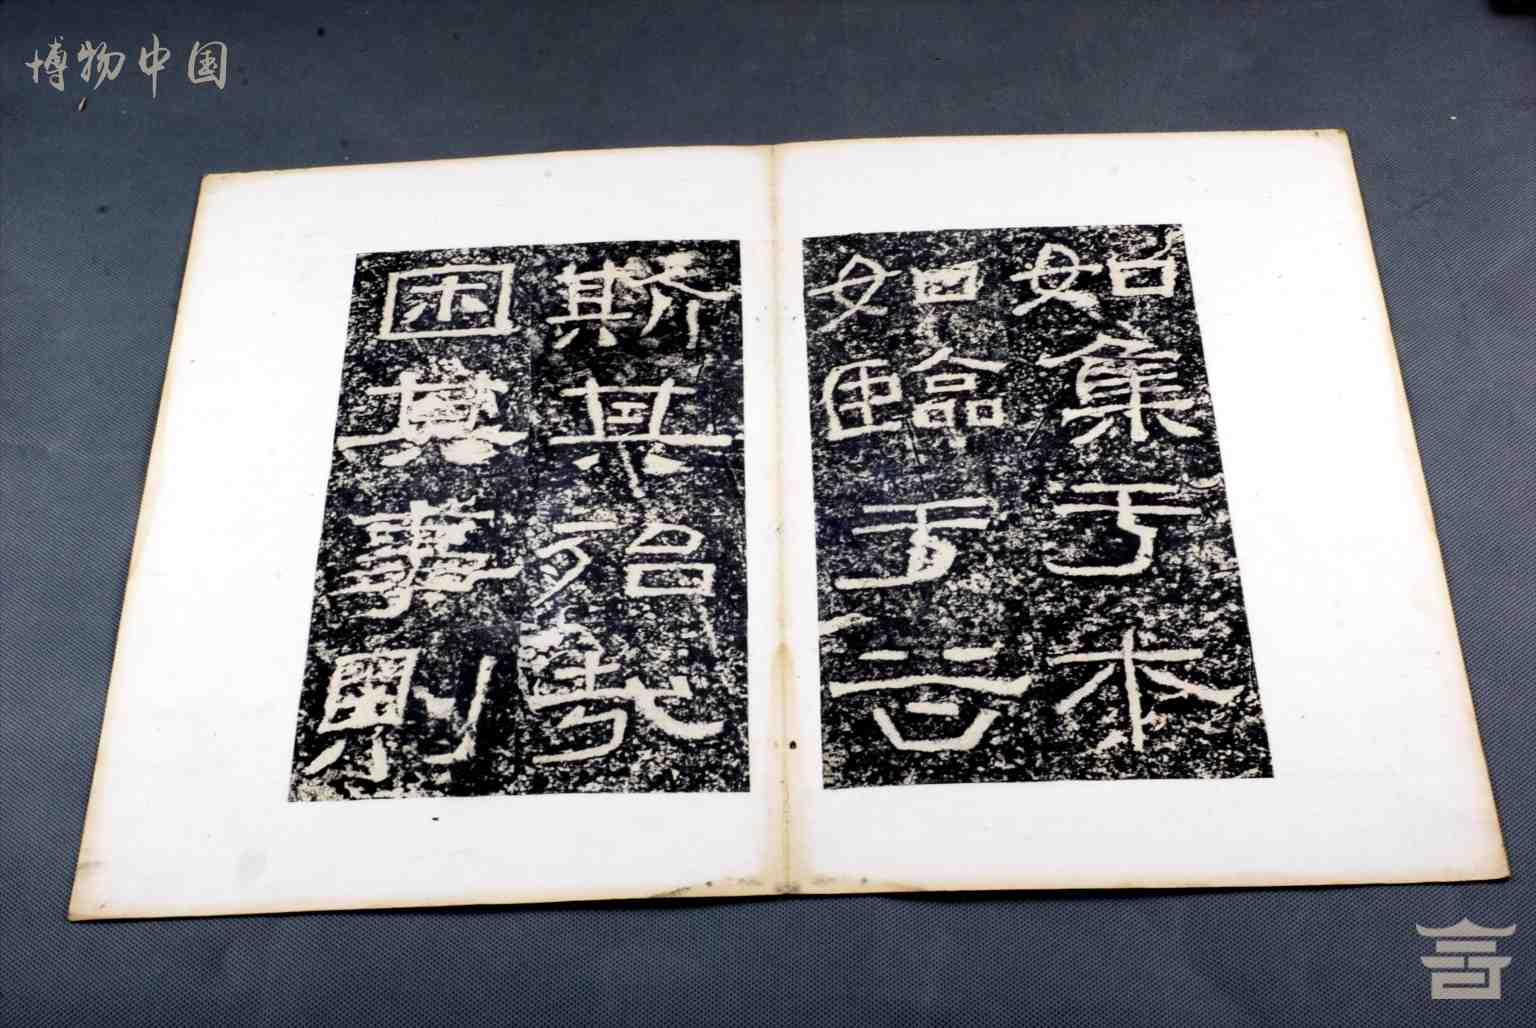 博物中国
如集于木
如臨于谷
斯其殆哉
困其事則